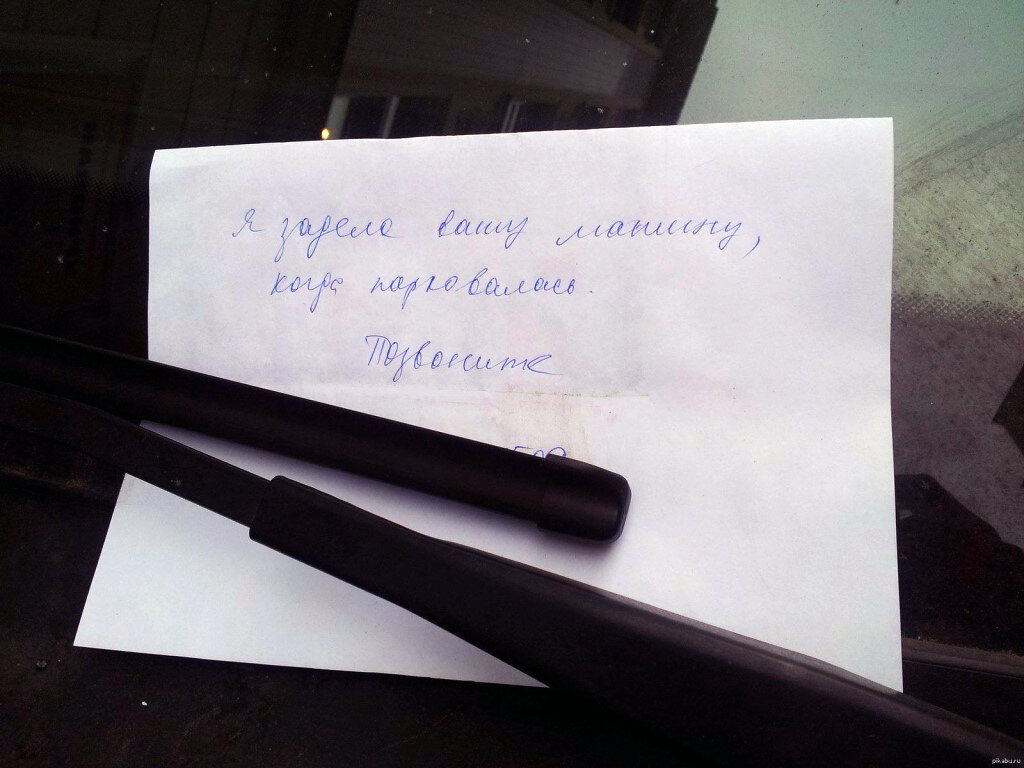 Я задела вашу машину,
когда парковалась.
Позвоните
pikabu.ru